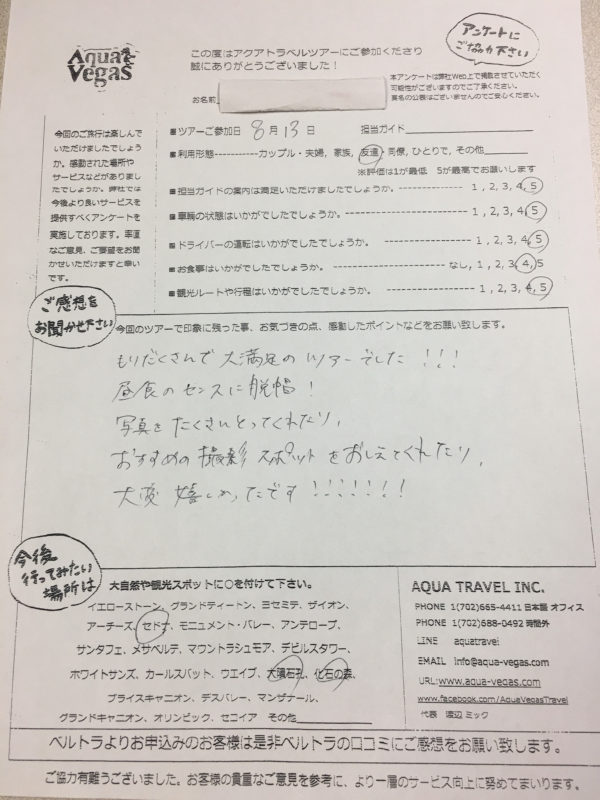 Aqua Vegas
この度はアクアトラベルツアーにご参加くださり
誠にありがとうございました！
アンケートに
ご協力下さい
本アンケートは弊社Web上で掲載させていただく
可能性がございますのでご了承ください。
実名の公表はございませんのでご安心ください。
お名前
今回のご旅行は楽しんで
いただけましたでしょう
か。感動された場所や
サービスなどがありまし
たでしょうか。弊社では
今後より良いサービスを
提供すべくアンケートを
実施しております。率直
なご意見、ご要望をお聞
かせいただけますと幸い
です。
■ツアーご参加日 8月13日 担当ガイド
■利用形態-----------カップル・夫婦, 家族, 友達・同僚, ひとりで, その他
※評価は1が最低 5が最高でお願いします
■担当ガイドの案内は満足いただけましたでしょうか。 ---------- 1, 2, 3, 4, 5
■車輌の状態はいかがでしたでしょうか。 ---------- 1, 2, 3, 4, 5
■ドライバーの運転はいかがでしたでしょうか。 ---------- 1, 2, 3, 4, 5
■お食事はいかがでしたでしょうか。 ---------- なし, 1, 2, 3, 4, 5
■観光ルートや行程はいかがでしたでしょうか。 ---------- 1, 2, 3, 4, 5
ご感想を
お聞かせ下さい
今回のツアーで印象に残った事、お気づきの点、感動したポイントなどをお願い致します。
もりだくさんで大満足のツアーでした!!!
昼食のセンスに脱帽!
写真をたくさんとってくれたり、
おすすめの撮影スポットをおしえてくれたり、
大変嬉しかったです!!!!!!!
今後
行ってみたい
場所は
大自然や観光スポットに○を付けて下さい。
イエローストーン、グランドティートン、ヨセミテ、ザイオン、
アーチーズ、セドナ、モニュメント・バレー、アンテロープ、
サンタフェ、メサベルデ、マウントラシュモア、デビルスタワー、
ホワイトサンズ、カールスバット、ウエイブ、大隕石孔、化石の森、
ブライスキャニオン、デスバレー、マンザナール、
グランドキャニオン、オリンピック、セコイア その他
AQUA TRAVEL INC.
PHONE 1(702)665-4411 日本語 オフィス
PHONE 1(702)688-0492 時間外
LINE aquatravel
EMAIL info@aqua-vegas.com
URL:www.aqua-vegas.com
www.facebook.com/AquaVegasTravel
代表 渡辺 ミック
ベルトラよりお申込みのお客様は是非ベルトラの口コミにご感想をお願い致します。
ご協力有難うございました。お客様の貴重なご意見を参考に、より一層のサービス向上に努めてまいります。